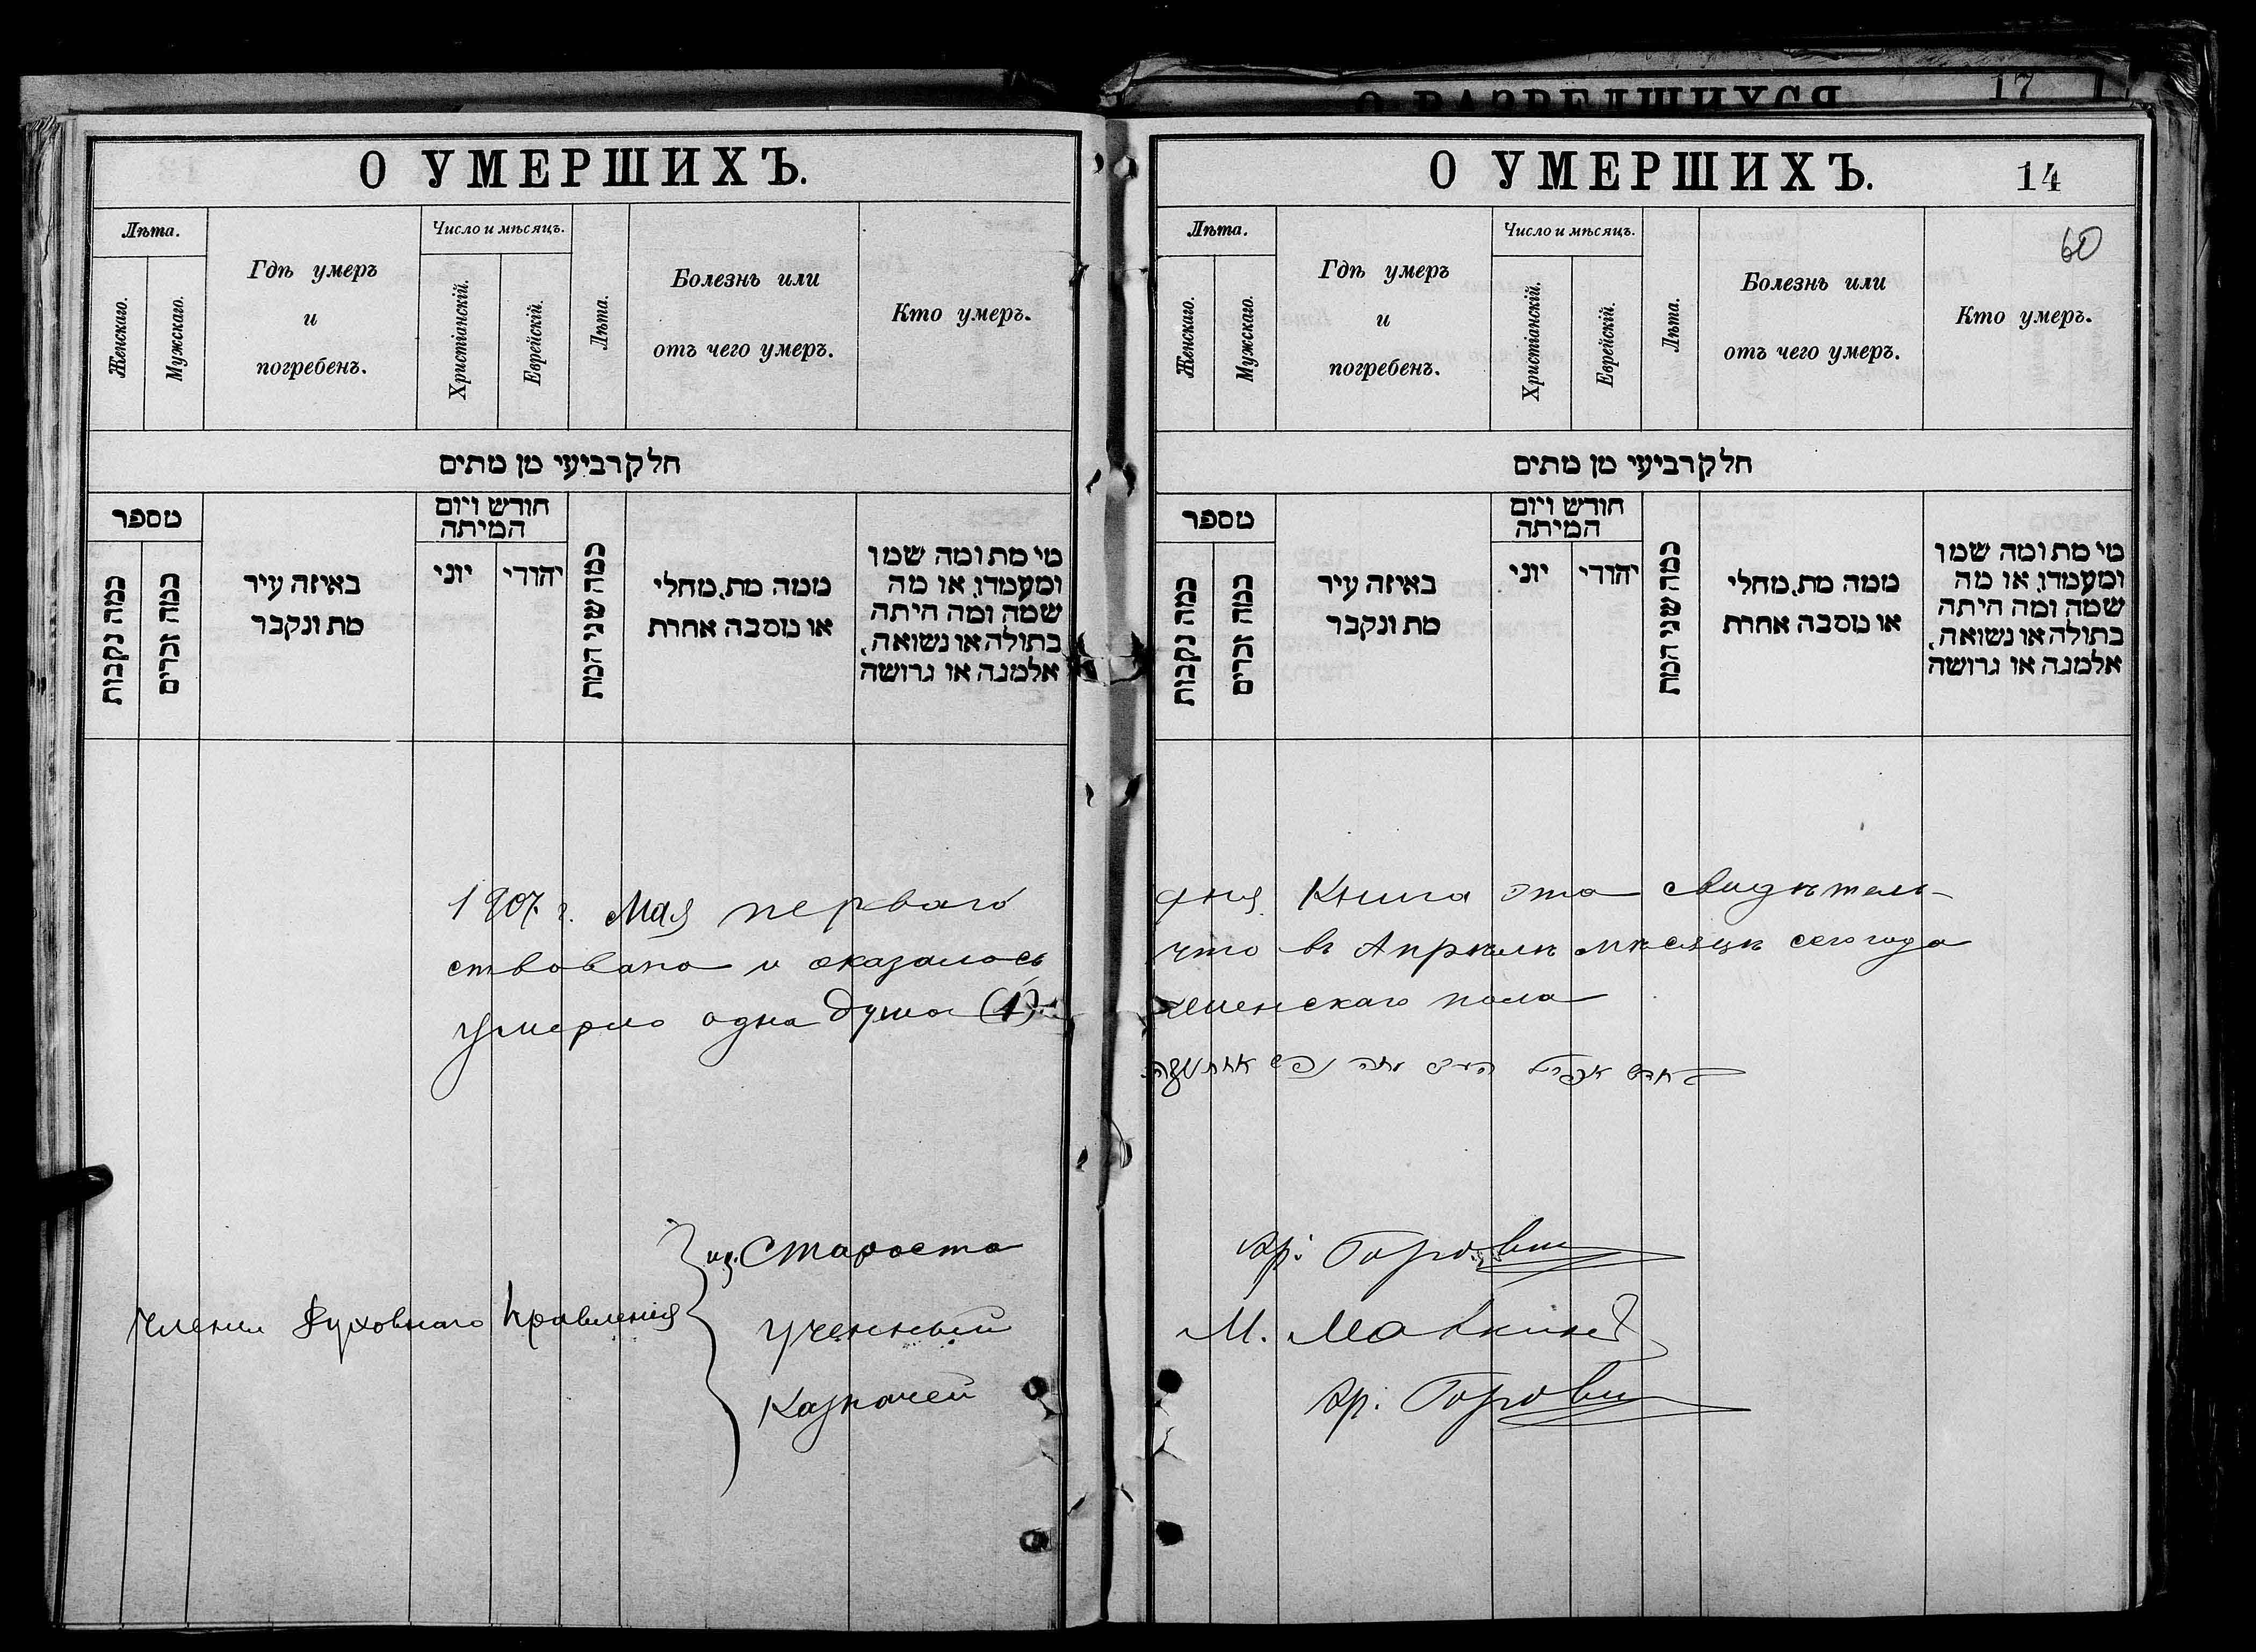 О РАЗВЕДШИХСЯ
17
О УМЕРШИХЪ.
Лѣта.
Женскаго.
Мужскаго.
Гдѣ умеръ
и
погребенъ.
Число и мѣсяцъ.
Христіанскій.
Еврейскій.
Лѣта.
Болезнь или
отъ чего умеръ.
Кто умеръ.
חלק רביעי מן מתים
מספר
כמה נקבות
כמה זכרים
באיזה עיר
מת ונקבר
חודש ויום
המיתה
יוני
יהודי
כמה שני המת
ממה מת, מחלי
או מסבה אחרת
מי מת ומה שמו
ומעמדו, או מה
שמה ומה היתה
בתולה או נשואה,
אלמנה או גרושה
1907 г. Мая перваго
ствована и оказалось
умерло одна душа (1)
Члены Духовнаго Правленія
из. Староста
Ученный
Казначей
О УМЕРШИХЪ.
14
60
Лѣта.
Женскаго.
Мужскаго.
Гдѣ умеръ
и
погребенъ.
Число и мѣсяцъ.
Христіанскій.
Еврейскій.
Лѣта.
Болезнь или
отъ чего умеръ.
Кто умеръ.
חלק רביעי מן מתים
מספר
כמה נקבות
כמה זכרים
באיזה עיר
מת ונקבר
חודש ויום
המיתה
יוני
יהודי
כמה שני המת
ממה מת, מחלי
או מסבה אחרת
מי מת ומה שמו
ומעמדו, או מה
שמה ומה היתה
בתולה או נשואה,
אלמנה או גרושה
дня Книга эта свидѣтель-
что въ Апрѣлѣ мѣсяцѣ сего года
женскаго пола
М.